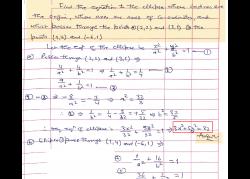 Find the equation to the ellipse whose centres are
the origin, whose axes are the axes of co-ordinates, and
which passes through the points (a) (2,2) and (3,1) (b) the
points (1,4) and (-6,1)
Let the eqn of the ellipse is x²/a² + y²/b² = 1 — (1)
(a) Passes through (2,2) and (3,1) ⇒
4/a² + 4/b² = 1 ⇒ 1/a² + 1/b² = 1/4 — (2)
9/a² + 1/b² = 1 — (3)
(3) - (2) ⇒ 8/a² = 3/4 ⇒ a² = 32/3
1/b² = 1/4 - 3/32 = 5/32 ⇒ b² = 32/5
∴ eqn of ellipse is 3x²/32 + 5y²/32 = 1 ⇒ 3x²+5y² = 32
(b) Ellipse passes through (1,4) and (-6,1)
1/a² + 16/b² = 1
36/a² + 1/b² = 1